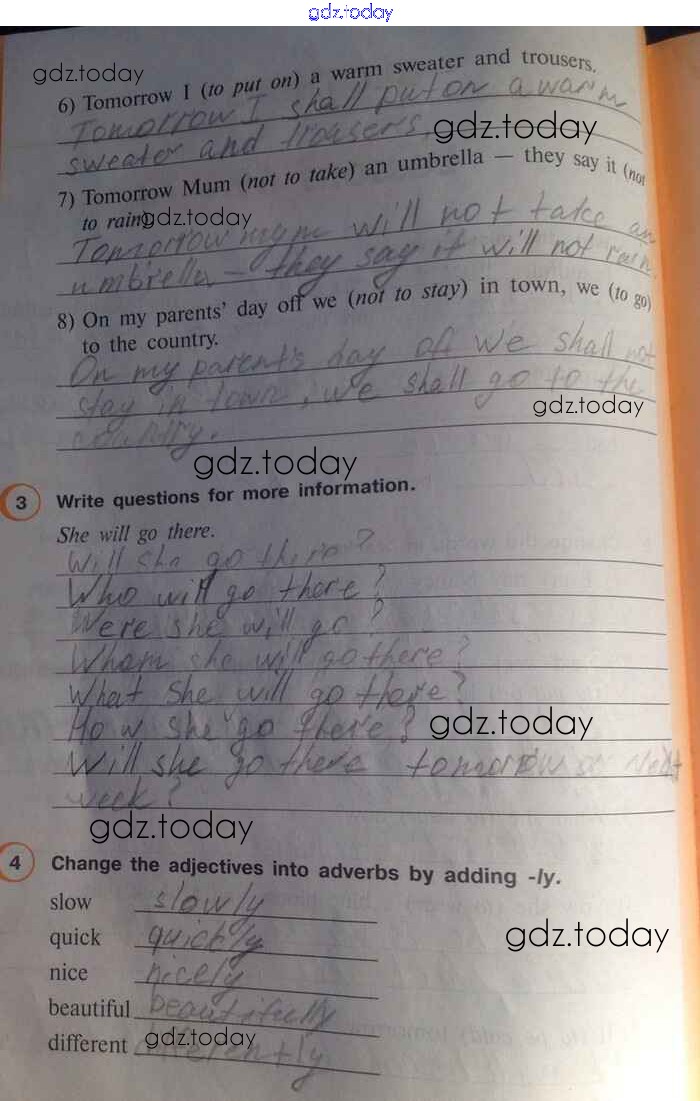 gdz.today
gdz.today
6) Tomorrow I (to put on) a warm sweater and trousers.
Tomorrow I shall put on a warm
sweater and trousers.
gdz.today
7) Tomorrow Mum (not to take) an umbrella — they say it (not
to rain).
gdz.today
Tomorrow will not take an
umbrella — they say it will not rain.
8) On my parents' day off we (not to stay) in town, we (to go)
to the country.
On my parent's day of we shall not
stay in town, we shall go to the
gdz.today
country.
gdz.today
3 Write questions for more information.
She will go there.
Will she go there?
Who will go there?
Were she will go?
Wham she will go there?
What she will go there?
How she go there?
gdz.today
Will she go there tomorrow or next
week?
gdz.today
4 Change the adjectives into adverbs by adding -ly.
slow slowly
quick quickly
gdz.today
nice nicely
beautiful beautifully
different differently
gdz.today